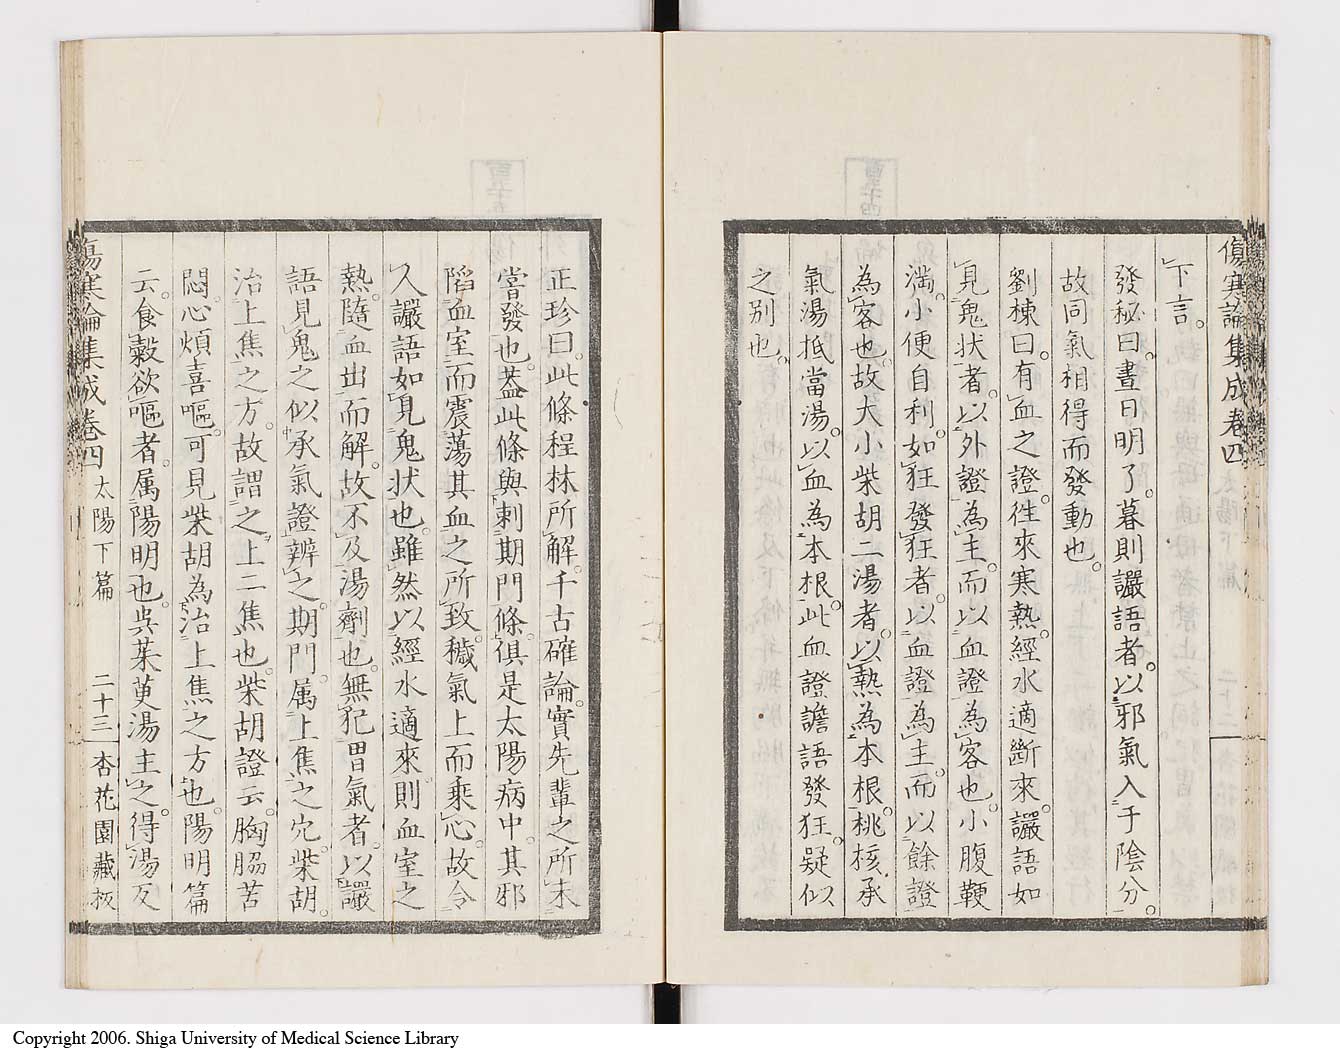 傷寒論集成卷四
下言。
發秘曰。晝日明了。暮則讝語者。以邪氣入于陰分。
故同氣相得而發動也。
劉棟曰。有血之證。往來寒熱。經水適斷來。讝語如
見鬼状者。以外證為主。而以血證為客也。小腹鞕
滿。小便自利。如狂發狂者。以血證為主。而以餘證
為客也。故大小柴胡二湯者。以熱為本根。桃核承
氣湯抵當湯。以血為本根。此血證譫語發狂。疑似
之別也。
正珍曰。此條程林所解。千古確論。實先輩之所未
嘗發也。葢此條與刺期門條。俱是太陽病中。其邪
陷血室。而震蕩其血之所致。穢氣上而乘心。故令
人讝語如見鬼状也。雖然以經水適來。則血室之
熱。隨血出而解。故不及湯劑也。無犯胃氣者。以讝
語見鬼之似承氣證辨之。期門。属上焦之穴。柴胡。
治上焦之方。故謂之上二焦也。柴胡證云。胸脇苦
悶。心煩喜嘔。可見柴胡為治上焦之方也。陽明篇
云。食穀欲嘔者。属陽明也。吳茱萸湯主之。得湯反
傷寒論集成卷四 太陽下篇 二十三 杏花園藏板
百五十四
Copyright 2006. Shiga University of Medical Science Library